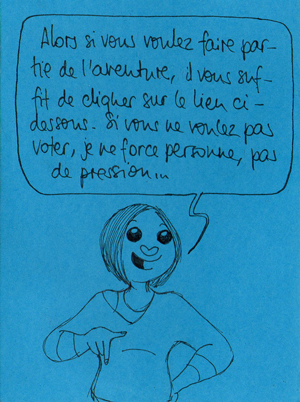 Alors si vous voulez faire par-
tie de l'aventure, il vous suf-
fit de cliquer sur le lien ci-
dessous. Si vous ne voulez pas
voter, je ne force personne, pas
de pression...